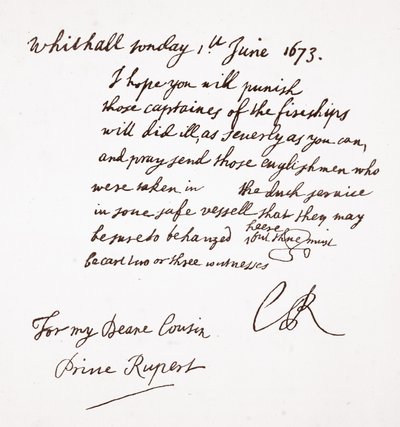 Whithall sonday 1st June 1673.
I hope you will punish
those captaines of the fireships
will did ill, as severly as you can,
and pray send those englishmen who
were taken in the duch service
in some safe vessell that they may
be sure to be hanged heere
be carl two or three witnesses
For my Deare Cousin
Prine Rupert
CR